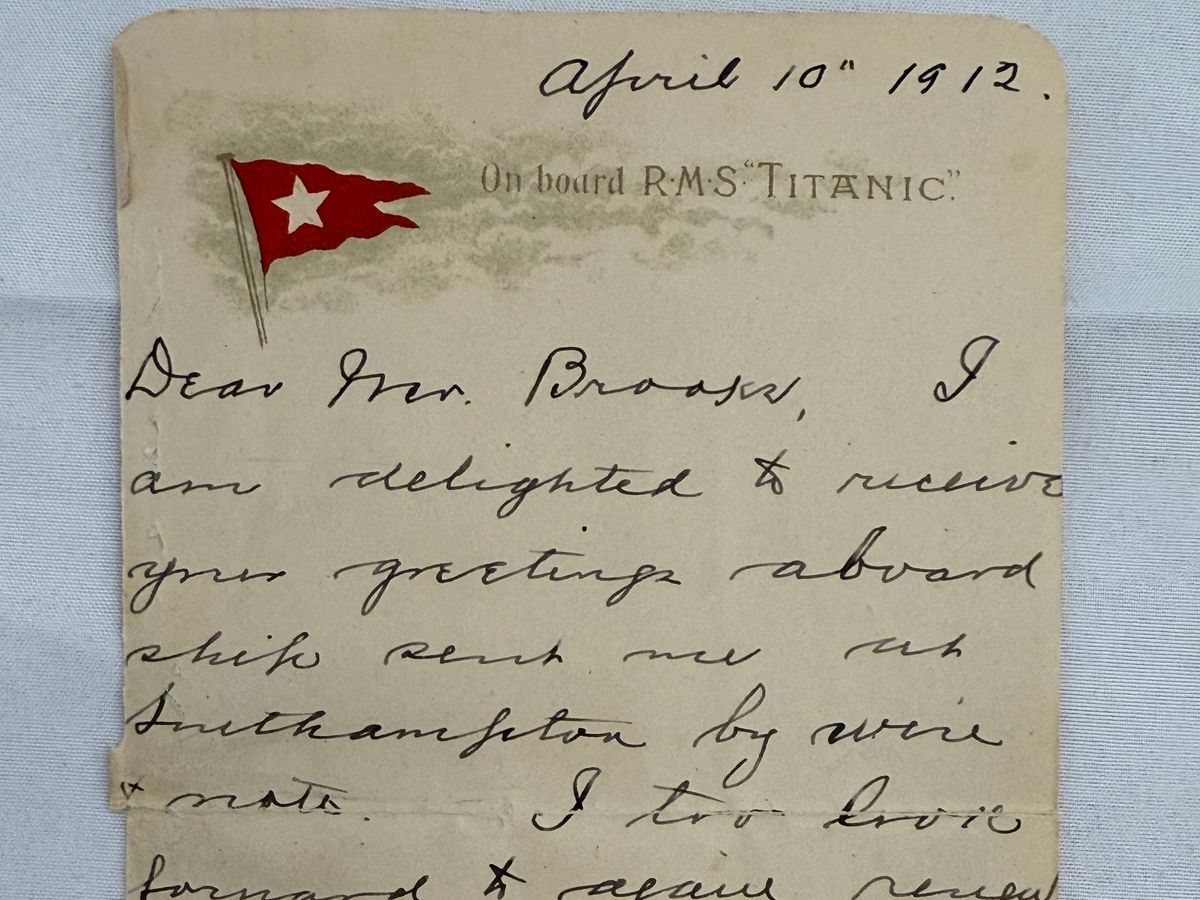 April 10" 1912.
On board R·M·S· "TITANIC".
Dear Mr. Brooks, I
am delighted to receive
your greetings aboard
ship sent me at
Southampton by wire
& note. I too look
forward to again renew